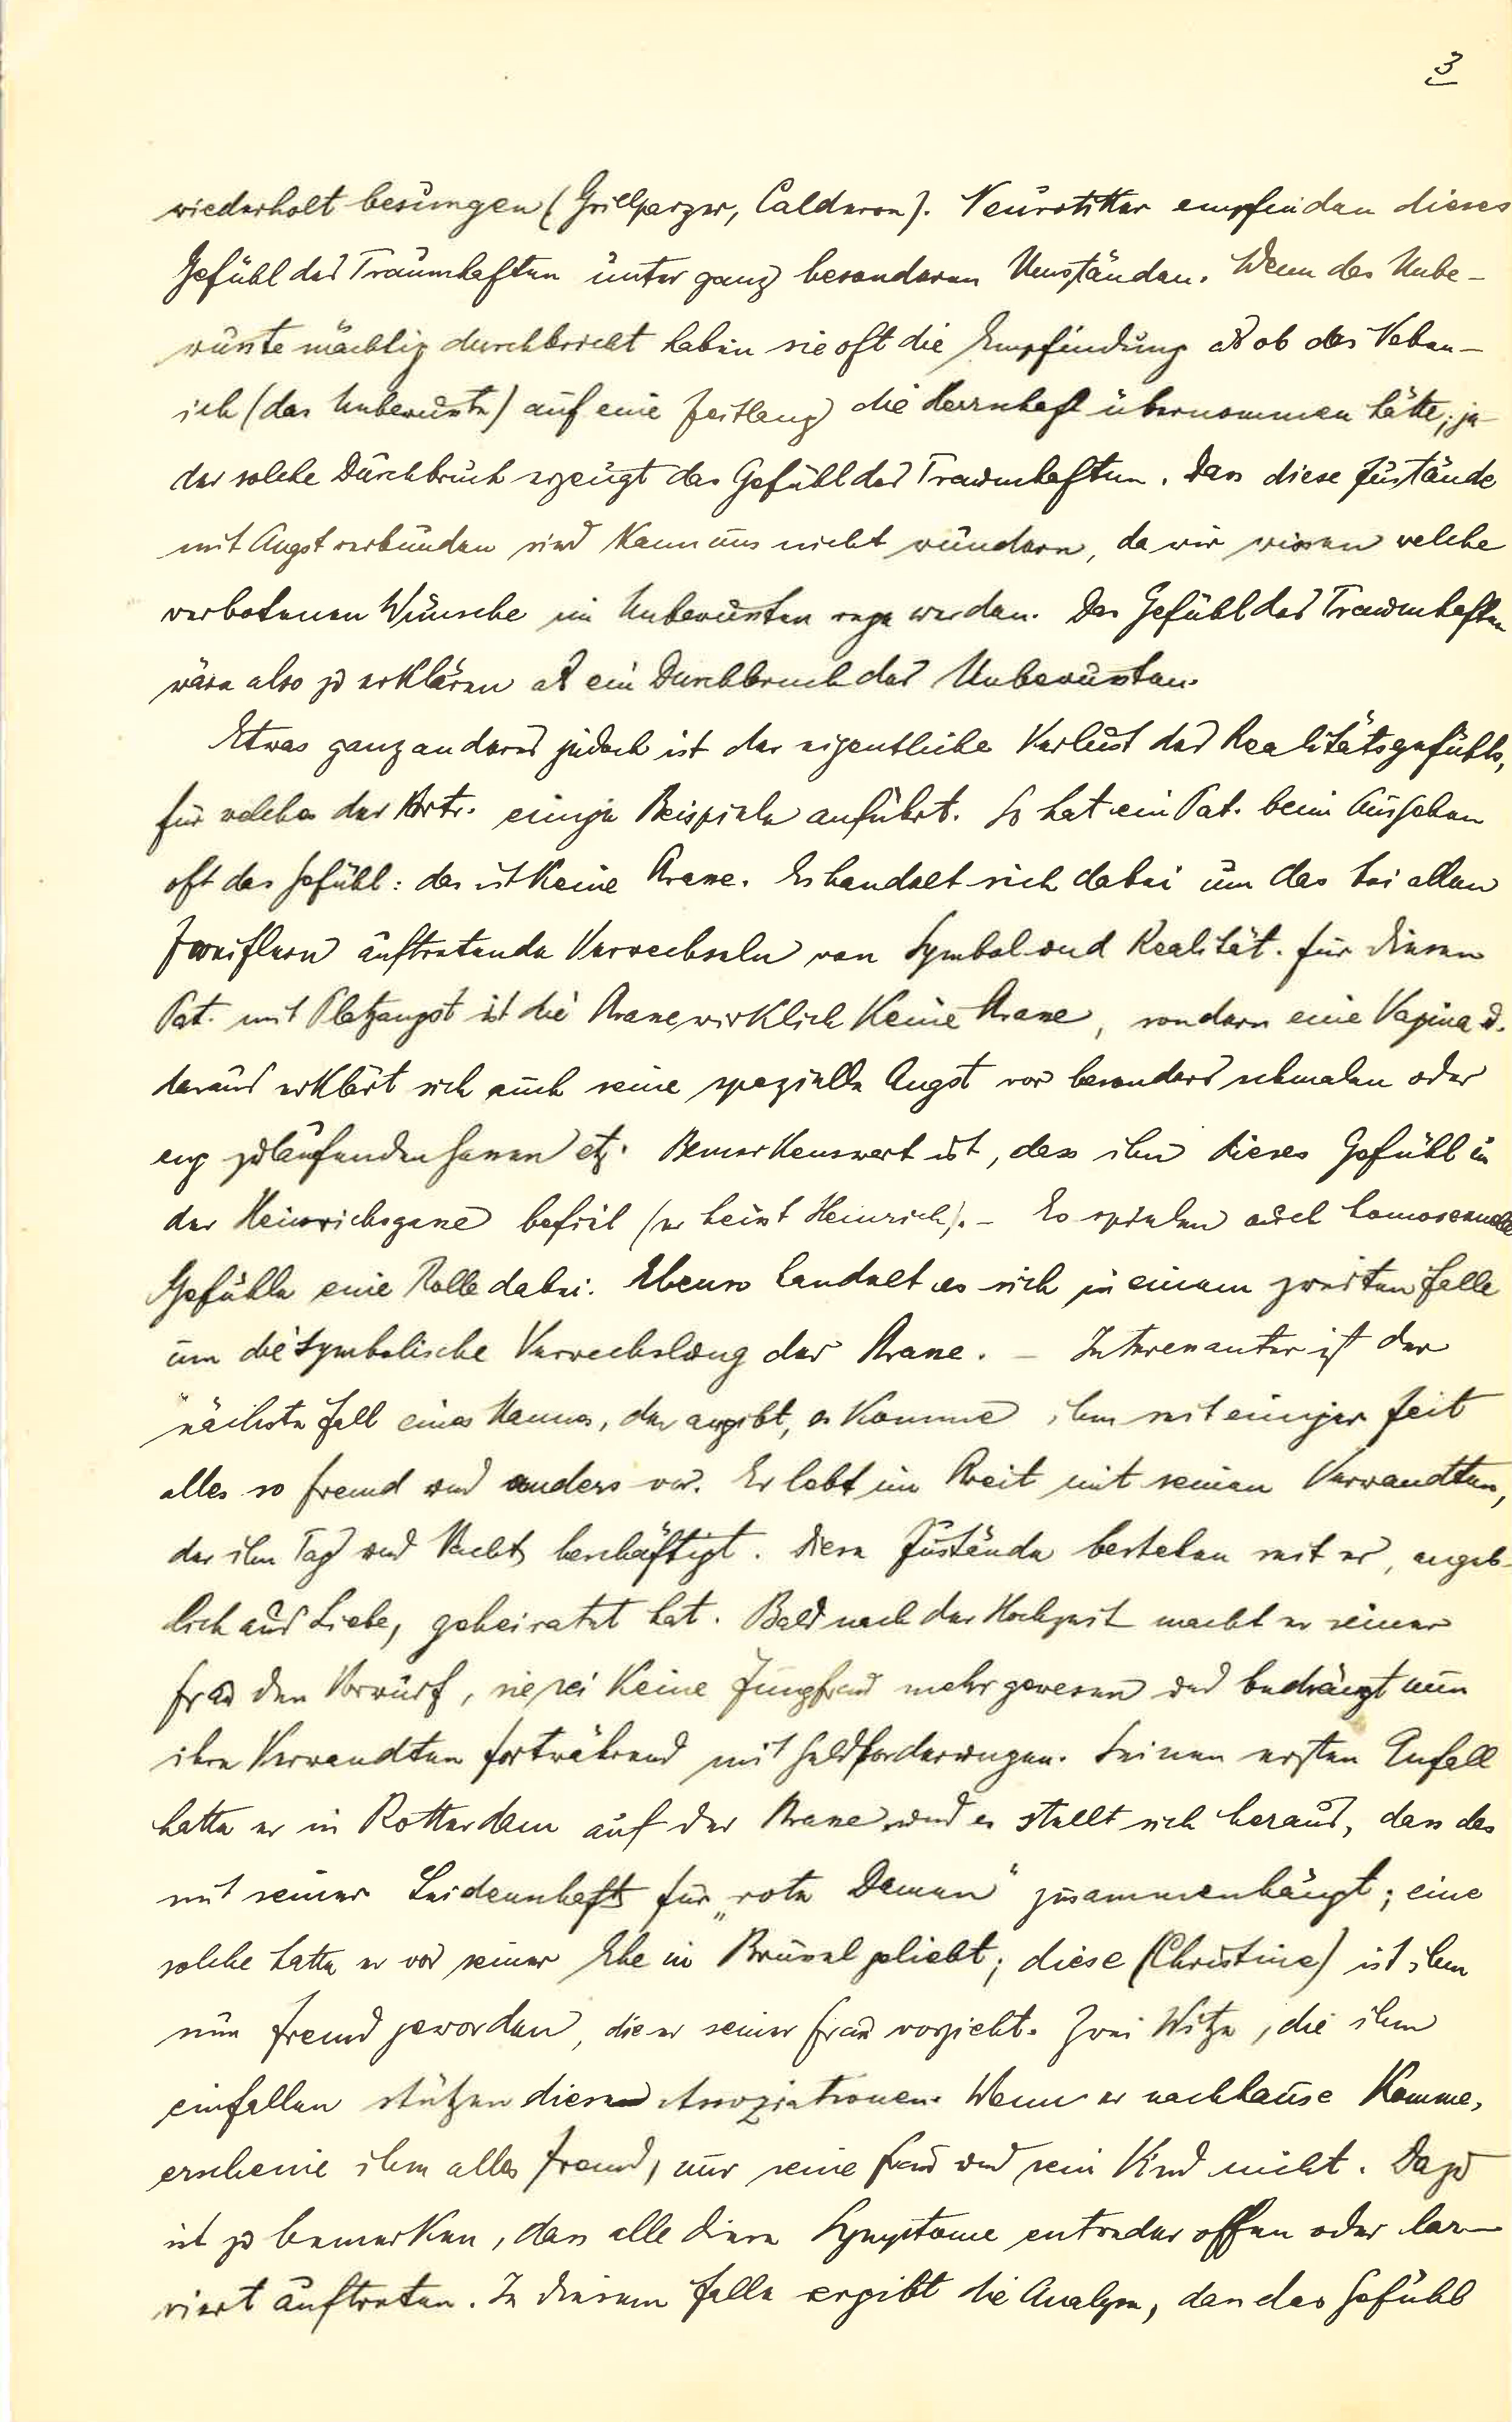 3
wiederholt besungen (Grillparzer, Calderon). Neurotiker empfinden dieses
Gefühl des Traumhaften unter ganz besonderen Umständen. Wenn das Unbe-
wusste mächtig durchbricht haben sie oft die Empfindung als ob das Neben-
ich (das Unbewusste) auf eine Zeitlang die Herrschaft übernommen hätte; je-
der solche Durchbruch erzeugt das Gefühl des Traumhaften. Dass diese Zustände
mit Angst verbunden sind kann uns nicht wundern, da wir wissen welche
verbotenen Wünsche im Unbewussten rege werden. Das Gefühl des Traumhaften
wäre also zu erklären als ein Durchbruch des Unbewussten.
Etwas ganz anderes jedoch ist der eigentliche Verlust des Realitätsgefühls,
für welches der Vortr. einige Beispiele anführt. So hat ein Pat. beim Ausgehen
oft das Gefühl: das ist keine Strasse. Es handelt sich dabei um das bei allen
Zweiflern auftretende Verwechseln von Symbol und Realität. Für diesen
Pat. mit Platzangst ist die Strasse wirklich keine Strasse, sondern eine Vagina u.
daraus erklärt sich auch seine spezielle Angst vor besonders schmalen oder
eng zulaufenden Gassen etz. Bemerkenswert ist, dass ihn dieses Gefühl in
der Heinrichsgasse befiel (er heisst Heinrich). – Es spielen auch homosexuelle
Gefühle eine Rolle dabei. Ebenso handelt es sich in einem zweiten Falle
um die symbolische Verwechslung der Strasse. – Interessanter ist der
nächste Fall eines Mannes, der angibt, es komme ihm seit einiger Zeit
alles so fremd und anders vor. Er lebt im Streit mit seinen Verwandten,
der ihn Tag und Nacht beschäftigt. Diese Zustände bestehen seit er, angeb-
lich aus Liebe, geheiratet hat. Bald nach der Hochzeit macht er seiner
Frau den Vorwurf, sie sei keine Jungfrau mehr gewesen und bedrängt nun
ihre Verwandten fortwährend mit Geldforderungen. Seinen ersten Anfall
hatte er in Rotterdam auf der Strasse und es stellt sich heraus, dass das
mit seiner Leidenschaft für „rote Damen“ zusammenhängt; eine
solche hatte er vor seiner Ehe in Brüssel geliebt; diese (Christine) ist ihm
nun fremd geworden, die er seiner Frau vorzieht. Zwei Witze, die ihm
einfallen stützen diese Assoziationen. Wenn er nachhause komme,
erscheine ihm alles fremd, nur seine Frau und sein Kind nicht. Dazu
ist zu bemerken, dass alle diese Symptome entweder offen oder lar-
viert auftreten. In diesem Falle ergibt die Analyse, dass das Gefühl